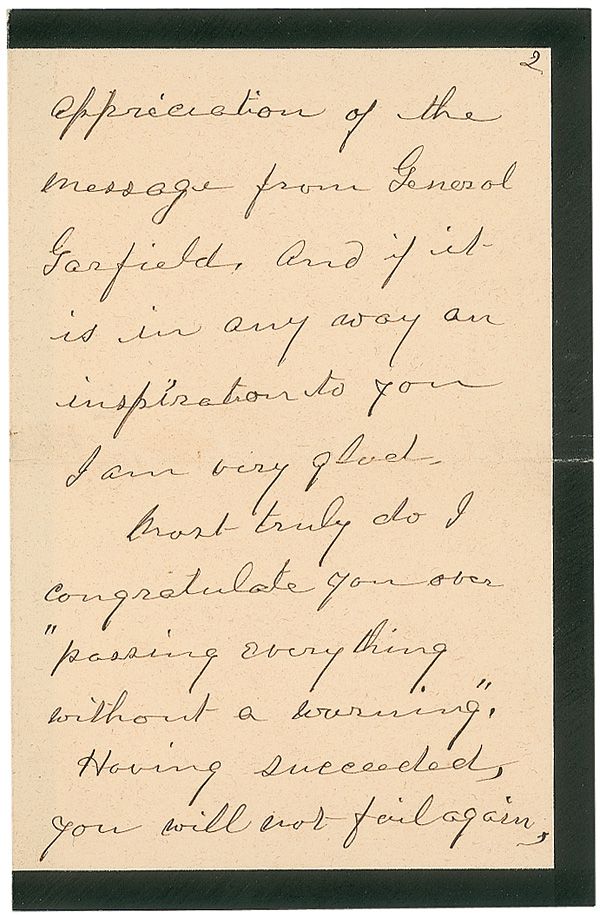 2
appreciation of the
message from General
Garfield. And if it
is in any way an
inspiration to you
I am very glad.
Most truly do I
congratulate you over
"passing everything
without a warning".
Having succeeded,
you will not fail again,